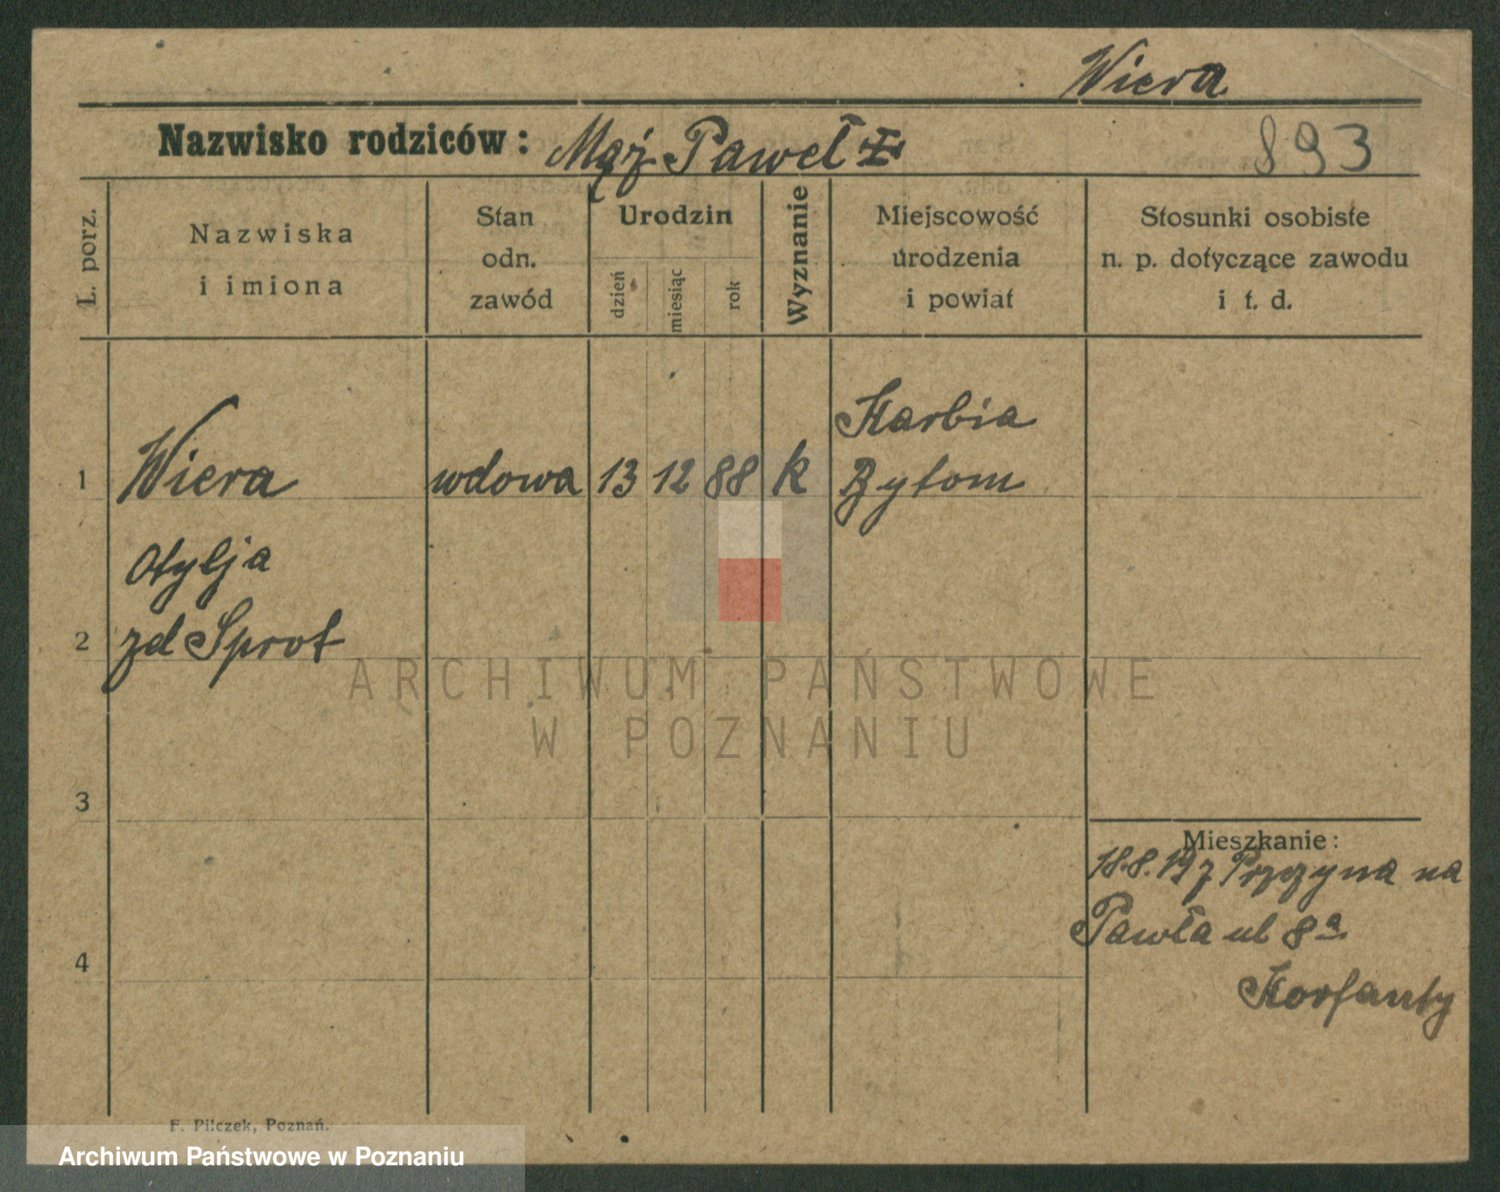 Wiera
Nazwisko rodziców: Mąż Paweł
893
L. porz.
Nazwiska
i imiona
Stan
odn.
zawód
Urodzin
dzień
miesiąc
rok
Wyznanie
Miejscowość
urodzenia
i powiat
Stosunki osobiste
n. p. dotyczące zawodu
i t. d.
Karbia
1 Wiera wdowa 13 12 88 k Bytom
Otylja
2 zd Sprot
ARCHIWUM PAŃSTWOWE
W POZNANIU
3
Mieszkanie:
18.8.19 z na
Pawła ul 8a
4
Korfanty
F. Pilczek, Poznań.
Archiwum Państwowe w Poznaniu